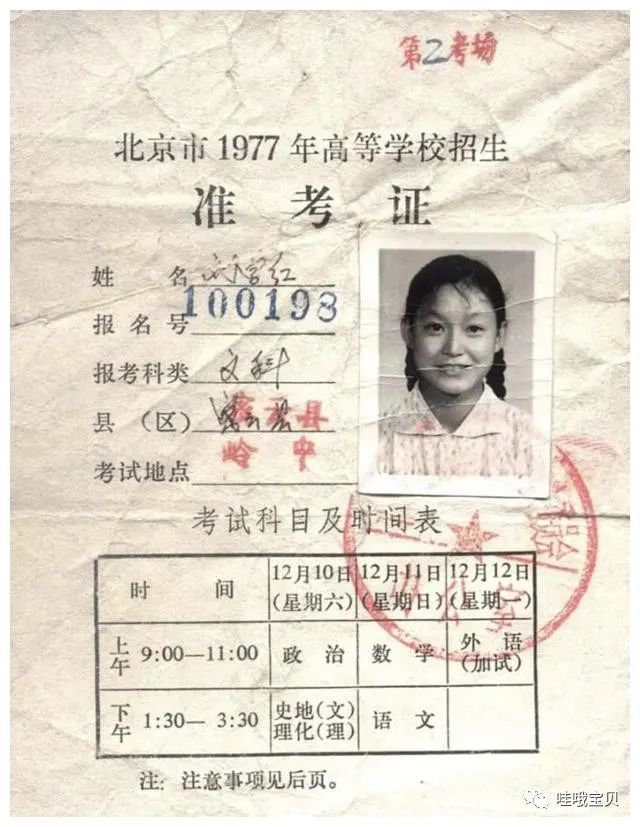 第2考场
北京市1977年高等学校招生
准考证
姓名 刘学红
报名号 100198
报考科类 文科
县（区） 密云县
密云县
岭中
考试地点
考试科目及时间表
时间 12月10日（星期六） 12月11日（星期日） 12月12日（星期一）
上午 9:00—11:00 政治 数学 外语（加试）
下午 1:30—3:30 史地(文) 理化(理) 语文
注：注意事项见后页。
办公室
哇哦宝贝